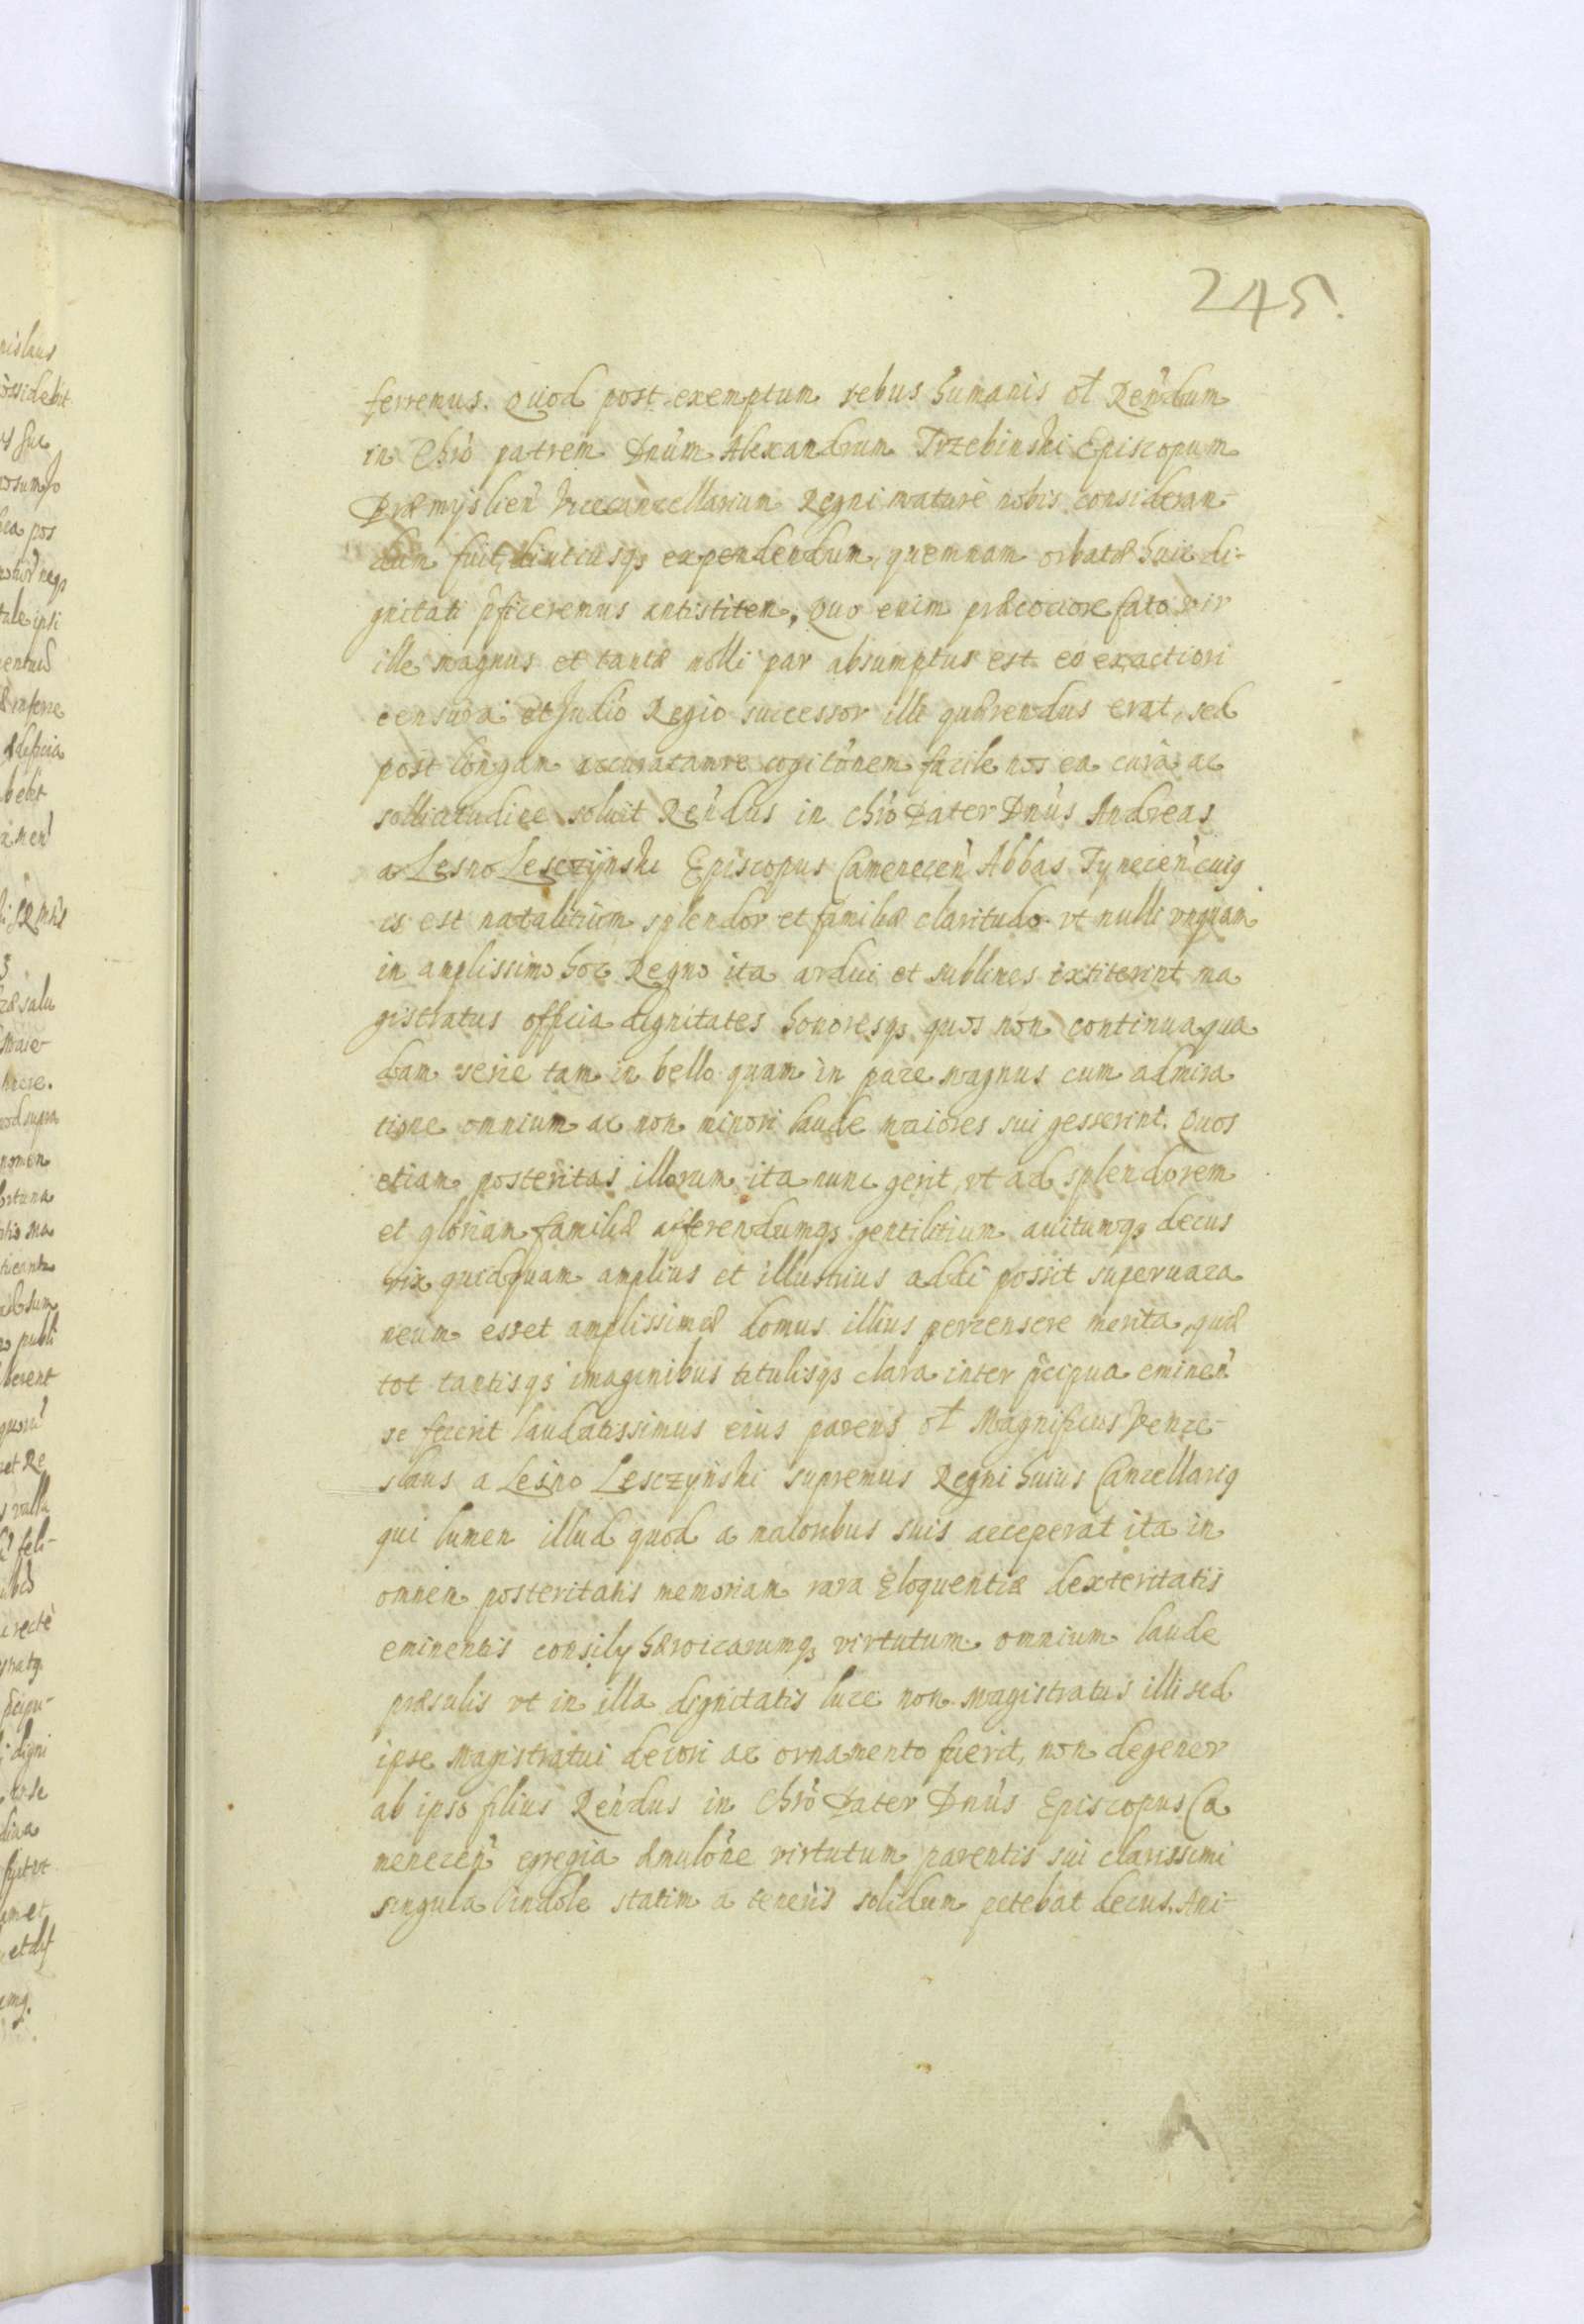 245.
ferremus. Quod post exemptum rebus humanis ol Rendum
in Chro patrem Dnum Alexandrum Trzebinski Episcopum
Præmyslien Vicecancellarium Regni mature nobis consideran-
dum fuit, diutiusqs expendendum, quemnam orbatæ huic di-
gnitati pficeremus antistitem, Quo enim præcociore fato vir
ille magnus et tantæ molli par absumptus est eo exactiori
censura et Judio Regio successor illi quærendus erat, sed
post longam accuratamve cogitonem facile nos ea cura ac
sollicitudine soluit Rendus in Chro Pater Dnus Andreas
a Lesno Lesczynski Episcopus Camenecen Abbas Tynecen cuig
is est natalitium splendor et familiæ claritudo vt nulli vnquam
in amplissimo hoc Regno ita ardui et sublimes extiterint ma
gistratus officia dignitates honoresqs quos non continua qua
dam serie tam in bello quam in pace magnus cum admira
tione omnium ac non minori laude maiores sui gesserint. Quos
etiam posteritas illorum ita nunc gerit, vt ad splendorem
et gloriam familiæ afferendumqs gentilitium auitumqs decus
vix quidquam amplius et illustrius addi possit superuaca
neum esset amplissimæ domus illius percensere merita, quæ
tot tantisqs imaginibus titulisqs clara inter pcipua eminen
se fecerit laudatissimus eius parens ol Magnificus Vence-
slaus a Lesno Lesczynski supremus Regni huius Cancellarig
qui lumen illud quod a maioribus suis acceperat ita in
omnem posteritatis memoriam rara Eloquentiæ dexteritatis
eminentis consily hæroicarumqs virtutum omnium laude
præsulis vt in illa dignitatis luce non Magistratus illi sed
ipse Magistratui decori ac ornamento fuerit, non degener
ab ipso filius Rendus in Chro Pater Dnus Episcopus Ca
menecen egregia æmulone virtutum parentis sui clarissimi
singula indole statim a teneris solidum petebat decus. Ani-